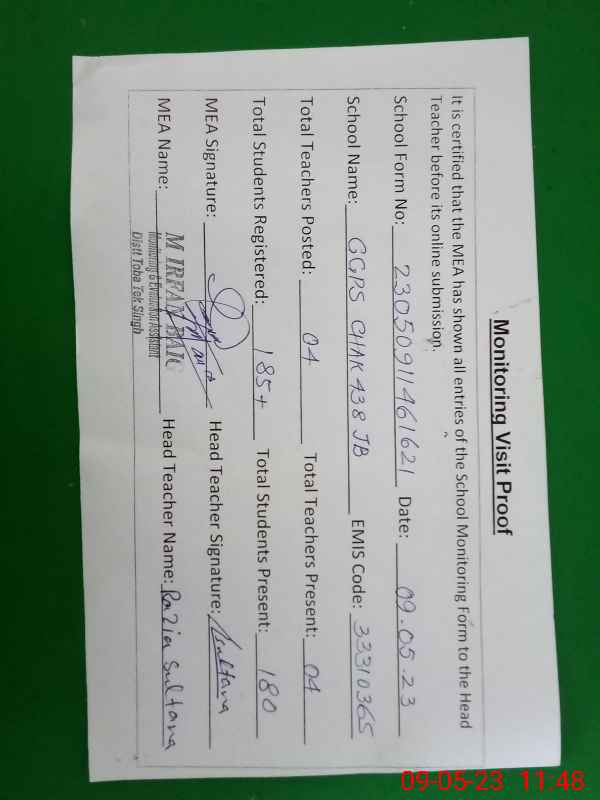 Monitoring Visit Proof
It is certified that the MEA has shown all entries of the School Monitoring Form to the Head
Teacher before its online submission.
School Form No: 23050911461621 Date: 09.05.23
School Name: GGPS CHAK 438 JB EMIS Code: 33310365
Total Teachers Posted: 04 Total Teachers Present: 04
Total Students Registered: 185+ Total Students Present: 180
MEA Signature: Head Teacher Signature: Sultana
MEA Name: M IRFAN BAIG Head Teacher Name: Razia Sultana
Monitoring & Evaluation Assistant
Distt Toba Tek Singh
09-05-23 11:48